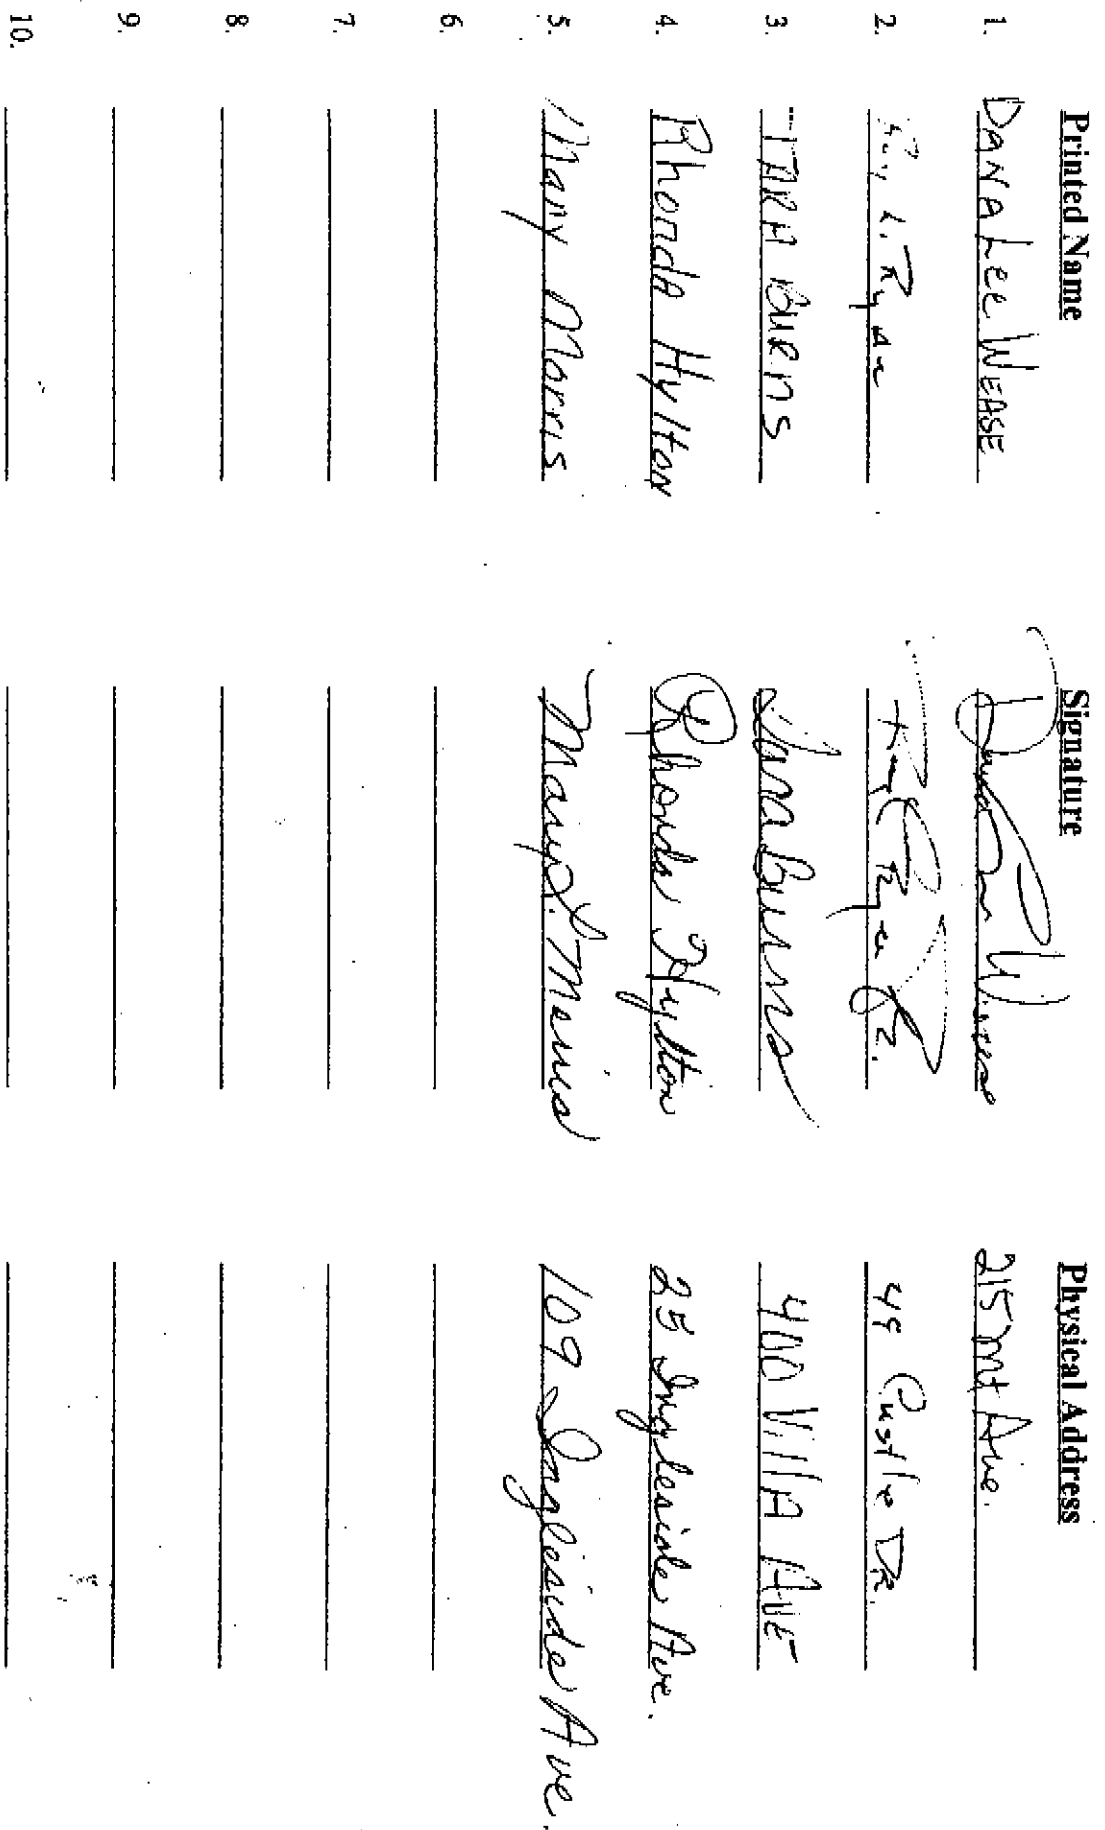 Printed Name Signature Physical Address
1. DANA Lee WEASE Dana Lee Wease 215 Mt Ave.
2. L. Ryan DR.
3. TARA BURNS Tara Burns 400 VILLA AVE
4. Rhonda Hylton Rhonda Hylton 25 Ingleside Ave.
5. Mary Morris Mary L. Morris 109 Ingleside Ave.
6.
7.
8.
9.
10.